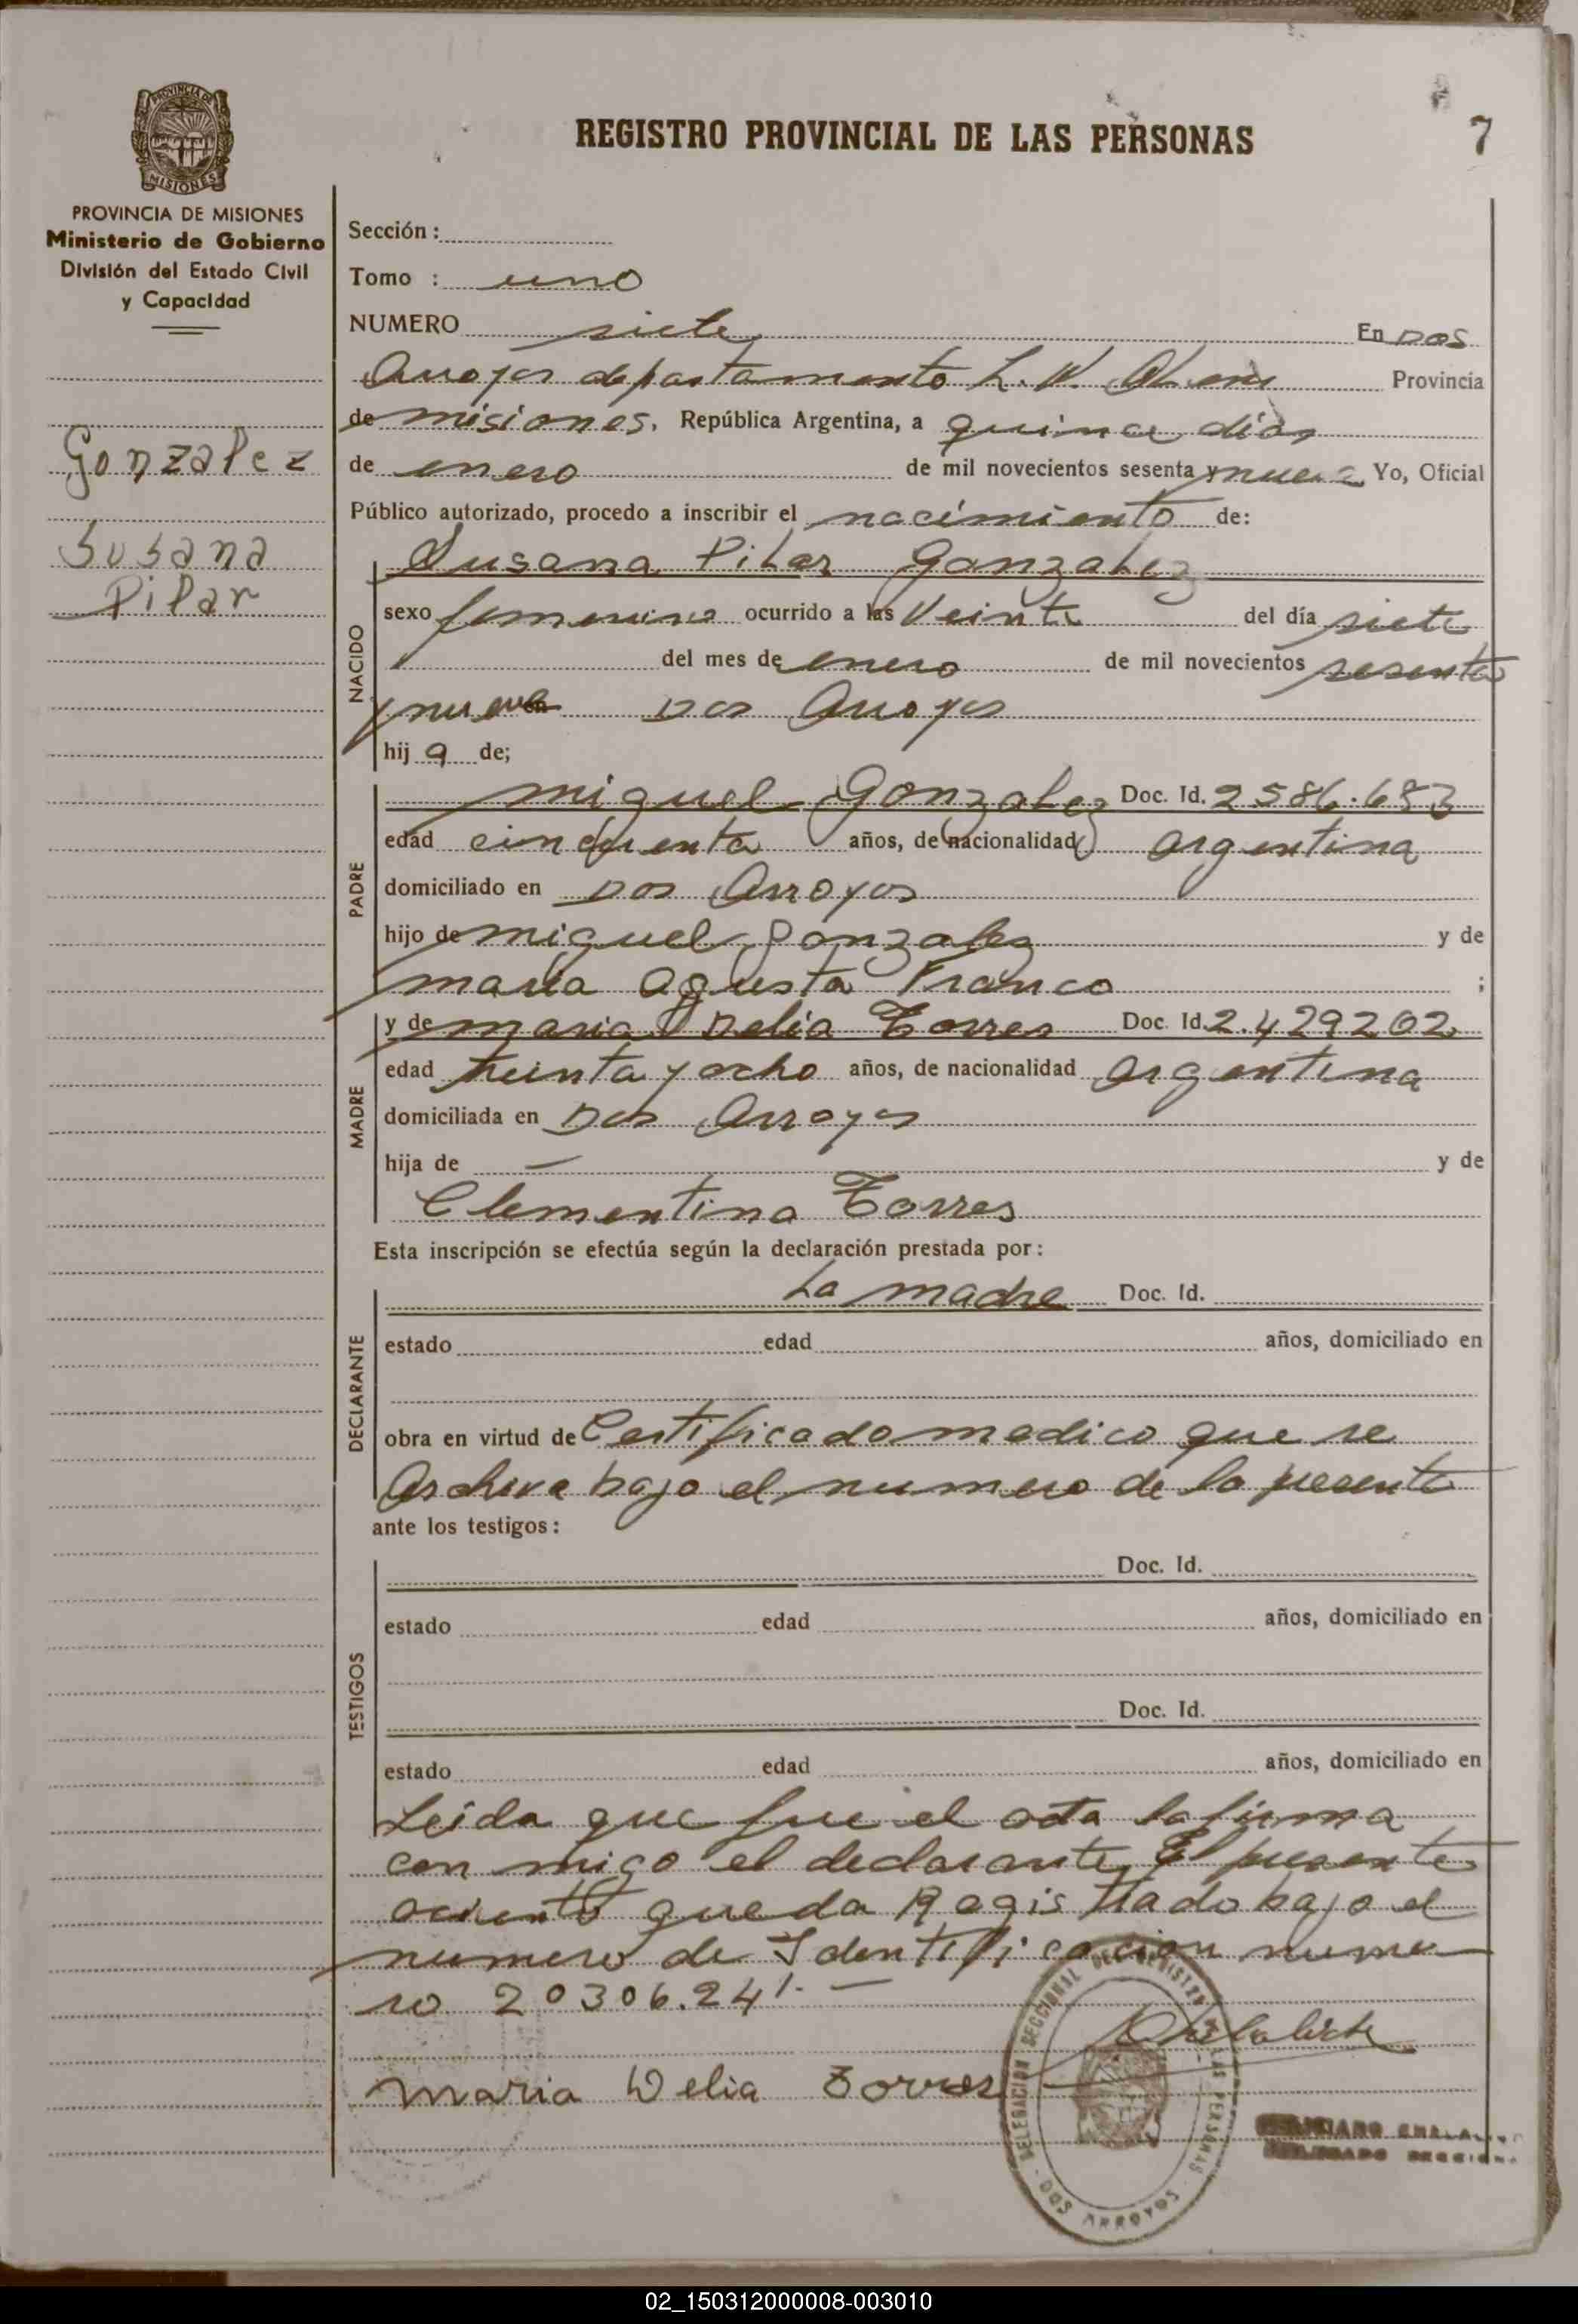 REGISTRO PROVINCIAL DE LAS PERSONAS
7
PROVINCIA DE
MISIONES
PROVINCIA DE MISIONES
Ministerio de Gobierno
División del Estado Civil
y Capacidad
Gonzalez
Susana
Pilar
Sección :
Tomo : uno
NUMERO siete En Dos
Arroyos departamento L. N. Alem Provincia
de misiones. República Argentina, a quince días
de enero de mil novecientos sesenta y nueve Yo, Oficial
Público autorizado, procedo a inscribir el nacimiento de:
NACIDO
Susana Pilar Gonzalez
sexo femenino ocurrido a las Veinte del día siete
del mes de enero de mil novecientos sesenta
y nueve Dos Arroyos
hij a de;
PADRE
miguel Gonzalez Doc. Id. 2586.683
edad cincuenta años, de nacionalidad argentina
domiciliado en Dos Arroyos
hijo de miguel Gonzalez y de
maria Agusta Franco ;
MADRE
y de maria Delia Torres Doc. Id. 2.429202
edad treinta y ocho años, de nacionalidad argentina
domiciliada en Dos Arroyos
hija de — y de
Clementina Torres
Esta inscripción se efectúa según la declaración prestada por:
DECLARANTE
La madre Doc. Id.
estado edad años, domiciliado en
obra en virtud de Certificado medico que se
Archiva bajo el numero de la presente
ante los testigos:
TESTIGOS
Doc. Id.
estado edad años, domiciliado en
Doc. Id.
estado edad años, domiciliado en
Leida que fue el acta la firma
con migo el declarante, El presente
queda Registrado bajo el
numero de Identificacion nume
ro 20306.241.—
maria Delia Torres
DELEGACION SECCIONAL DEL REGISTRO DE LAS PERSONAS
DOS ARROYOS
02_150312000008-003010